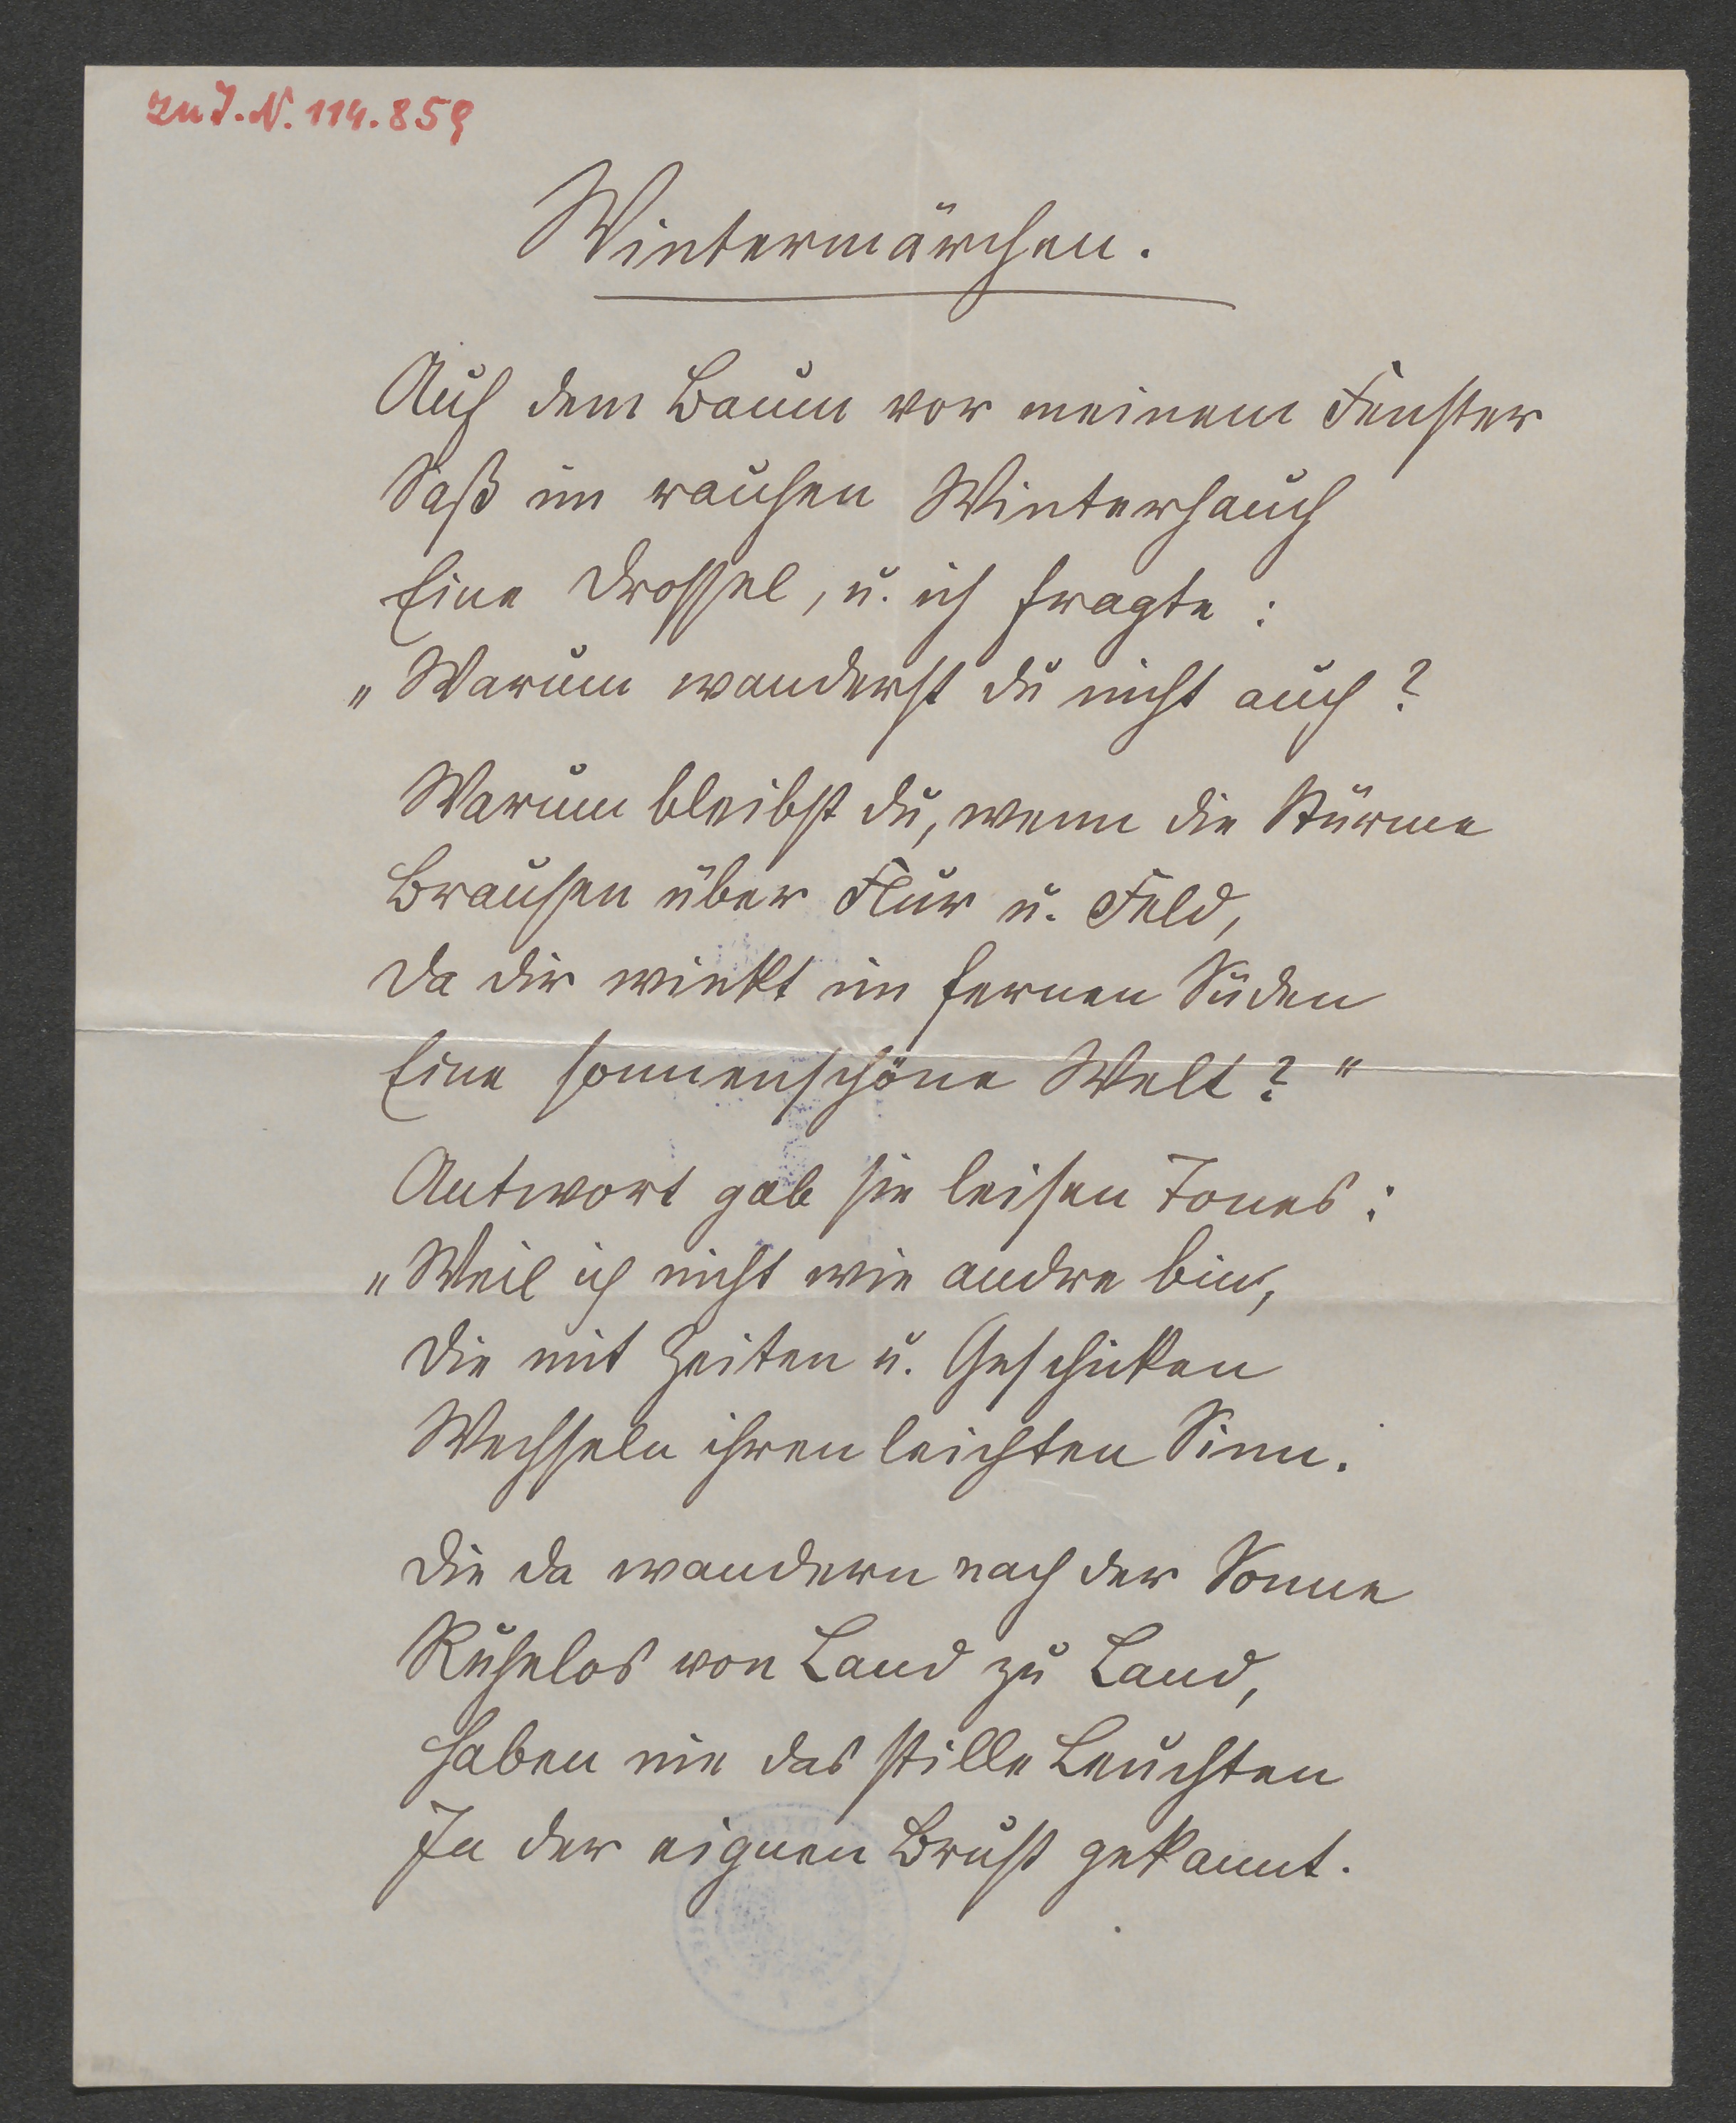 zu I.N. 114.859
Wintermärchen.
Auf dem Baum vor meinem Fenster
Saß im rauhen Winterhauch
Eine Drossel, u. ich fragte:
„Warum wanderst du nicht auch?
Warum bleibst du, wenn die Stürme
Brausen über Flur u. Feld,
Da dir winkt im fernen Süden
Eine sonnenschöne Welt?"
Antwort gab sie leisen Tones:
„Weil ich nicht wie andre bin,
Die mit Zeiten u. Geschicken
Wechseln ihren leichten Sinn.
Die da wandern nach der Sonne
Ruhelos von Land zu Land,
Haben nie das stille Leuchten
In der eignen Brust gekannt.